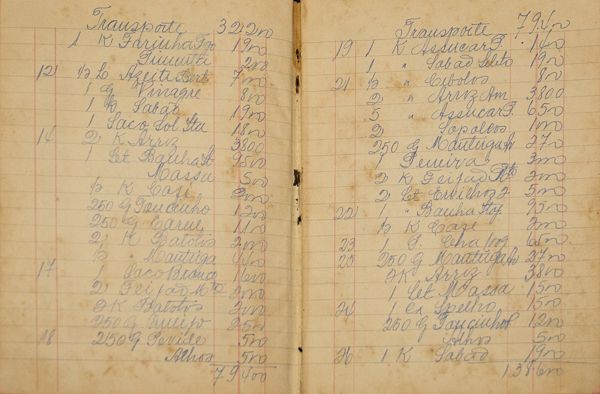 Transporte 32200
1 K Farinha Tgo 1900
Pimenta 200
12 1/2 L Azeite 7000
1 G Vinagre 800
1 K Sabão 1900
1 Saco Sal 1800
14 2 K Arroz 3800
1 Lat Banha 9500
Massa 500
1/2 K Café
250 G Toucinho 1200
250 G Carne 1100
2 K Batatas 2000
1/2 Manteiga
17 1 Saco 1600
2 Feijão Mto 3000
2 K Batatas 2000
250 G Queijo 2500
18 250 G 500
Alhos 500
79400
Transporte 79400
19 1 K Assucar T. 1400
1 " Sabão 1900
21 1/2 " Cebolas 800
2 " Arroz Am 3800
5 " Assucar T. 6500
2 Repolhos 1000
250 G Manteiga 2700
1 Peneira 3000
2 K Feijão Pto 3000
2 Lt Ervilhas 5000
22 1 " Banha 9500
1/2 K Café 3000
23 1 6500
25 250 G Manteiga 2700
2 K Arroz 3800
1 Let Massa 1500
24 1 Cx 1500
250 G Toucinho 1200
Alhos 500
26 1 K Sabão 1900
138600